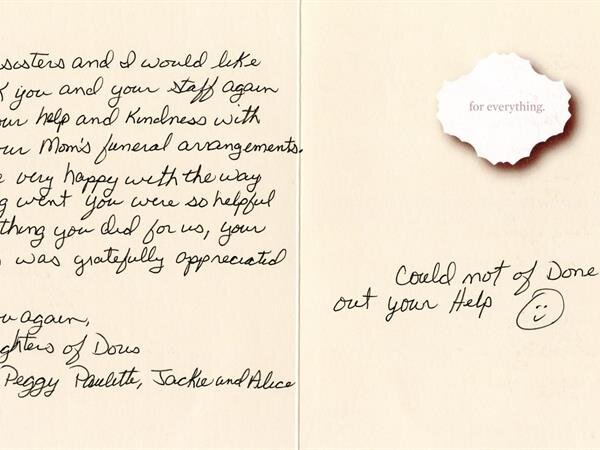 sisters and I would like
you and your staff again
our help and kindness with
our Mom's funeral arrangements.
very happy with the way
went you were so helpful
thing you did for us, your
was gratefully appreciated
again,
ghters of Doris
Peggy Paulette, Jackie and Alice
for everything.
Could not of Done
out your Help